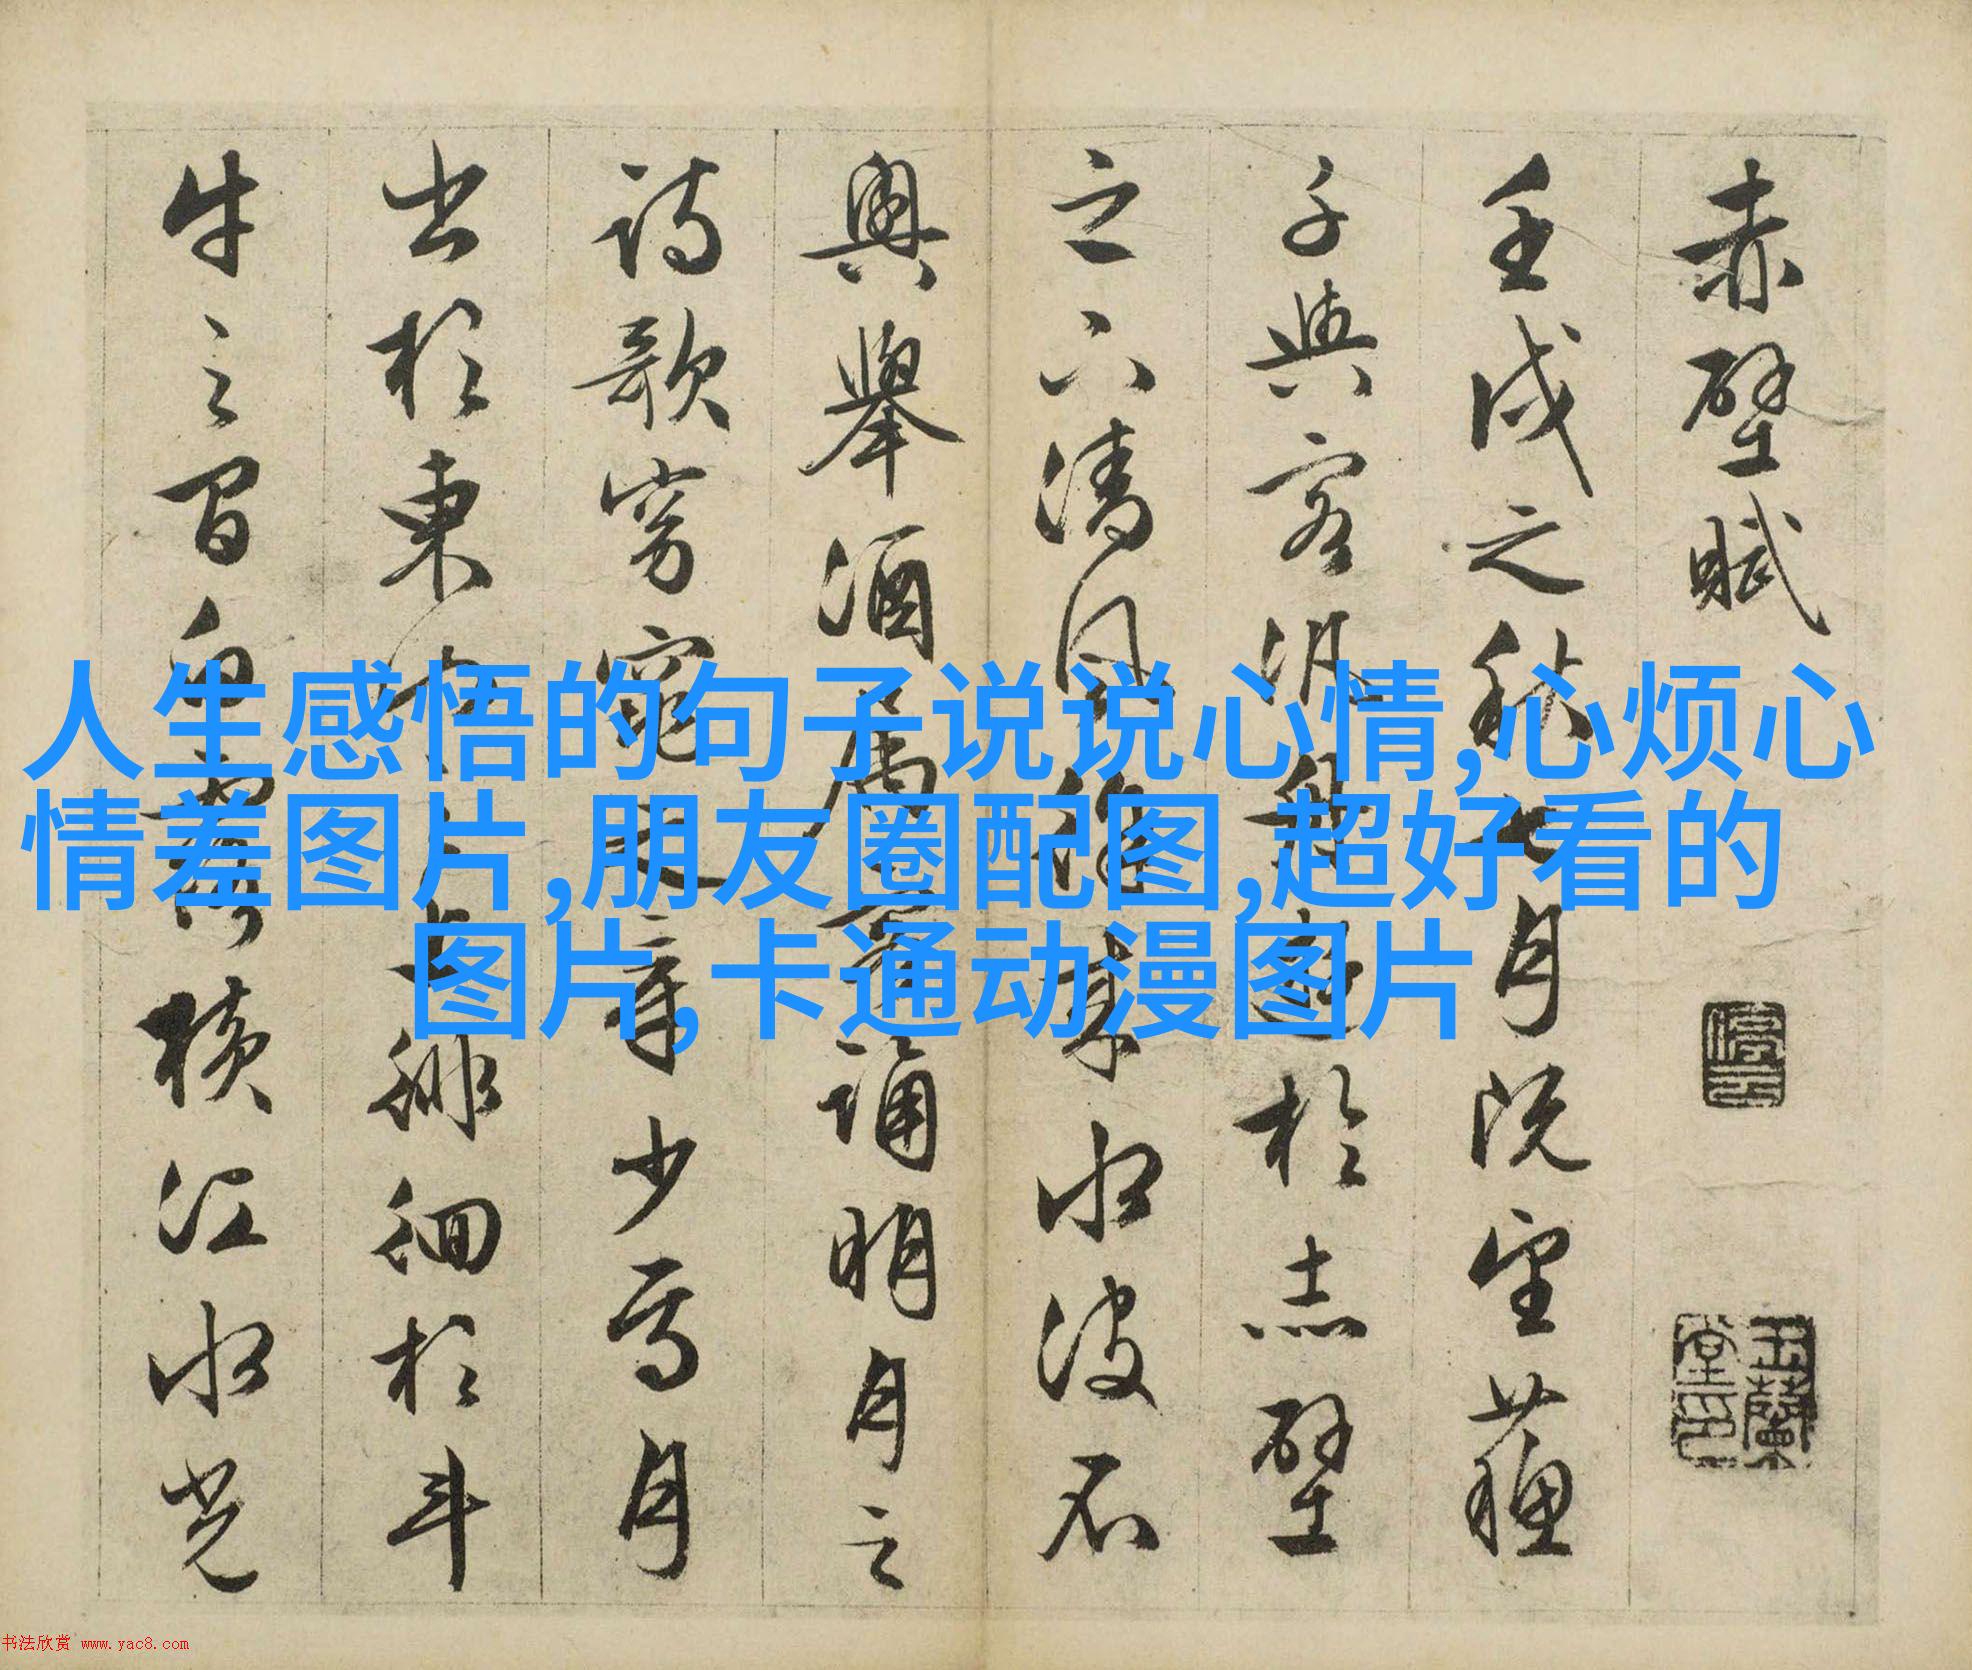 赤壁賦
壬戌之秋七月既望蘇
子與客汎舟遊於赤壁
之下清風徐來水波不
興舉酒屬客誦明月之
詩歌窈窕之章少焉月
出於東山之上徘徊於斗
牛之間白露橫江水光
停雲
玉蘭堂印
人生感悟的句子说说心情,心烦心
情差图片,朋友圈配图,超好看的
图片,卡通动漫图片
书法欣赏 www.yac8.com